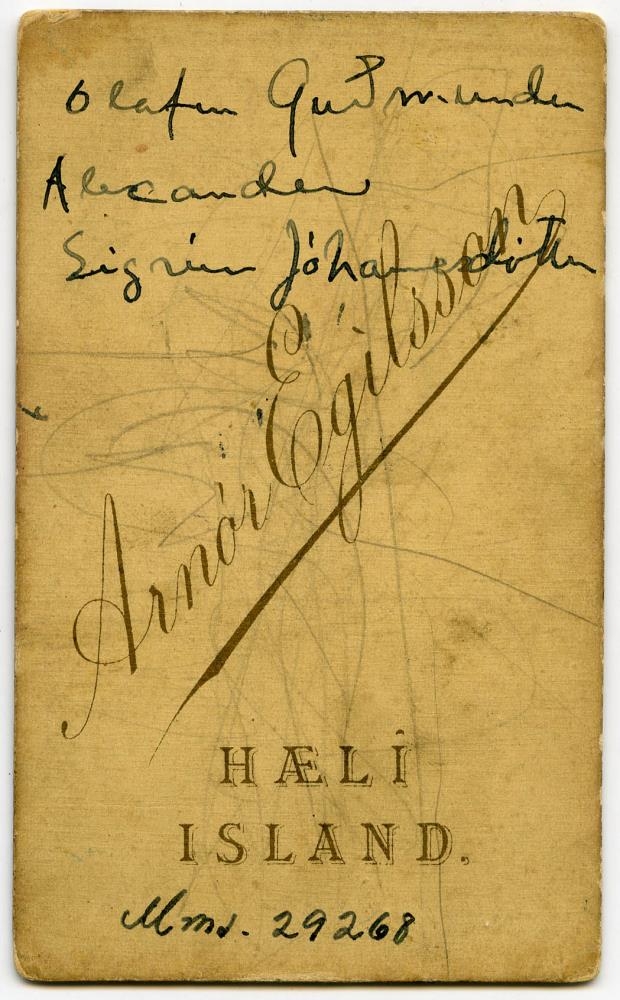 Olafur Guðmundur
Alexander
Sigrún Jóhannsdóttir
Arnór Egilsson
HÆLI
ISLAND.
Mms. 29268